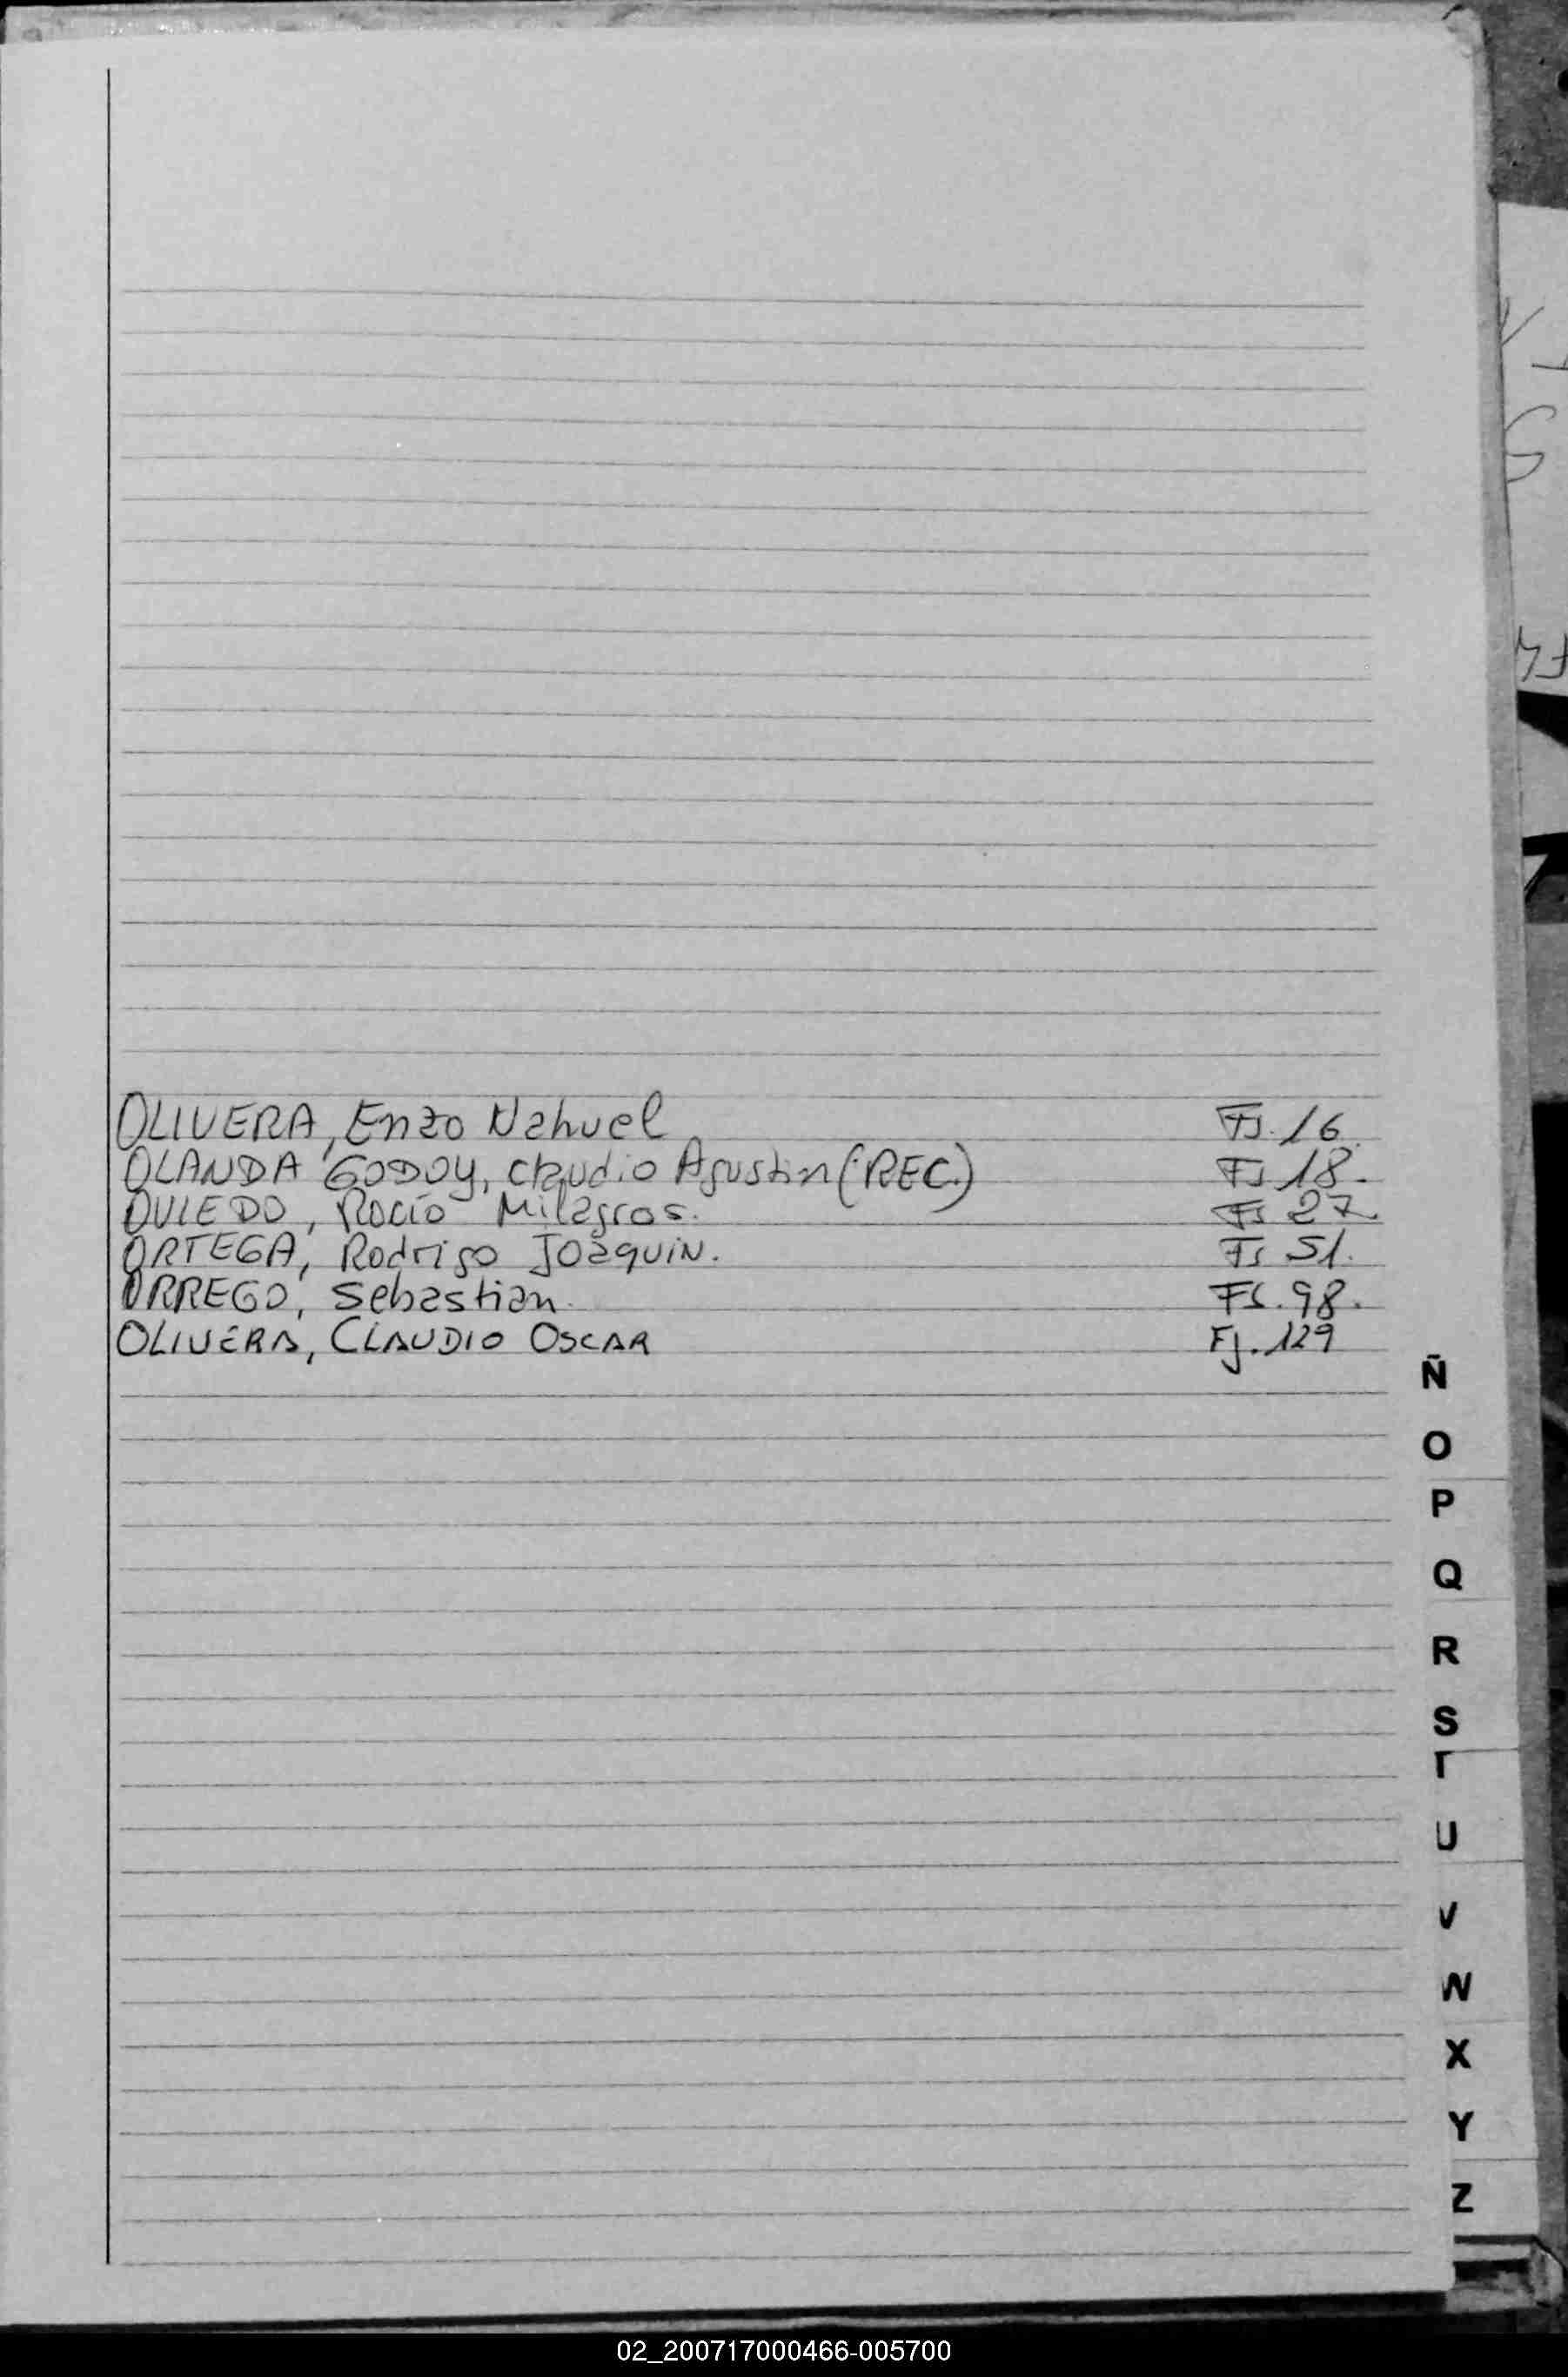 OLIVERA, Enzo Nahuel Fs. 16.
OLANDA GODOY, Claudio Agustin (REC.) Fs 18.
OVIEDO, Rocío Milagros. Fs 27.
ORTEGA, Rodrigo JOaquiN. Fs 51.
ORREGO, Sebastian. Fs. 98.
OLIVERA, CLAUDIO OSCAR Fj. 129
Ñ
O
P
Q
R
S
T
U
V
W
X
Y
Z
02_200717000466-005700